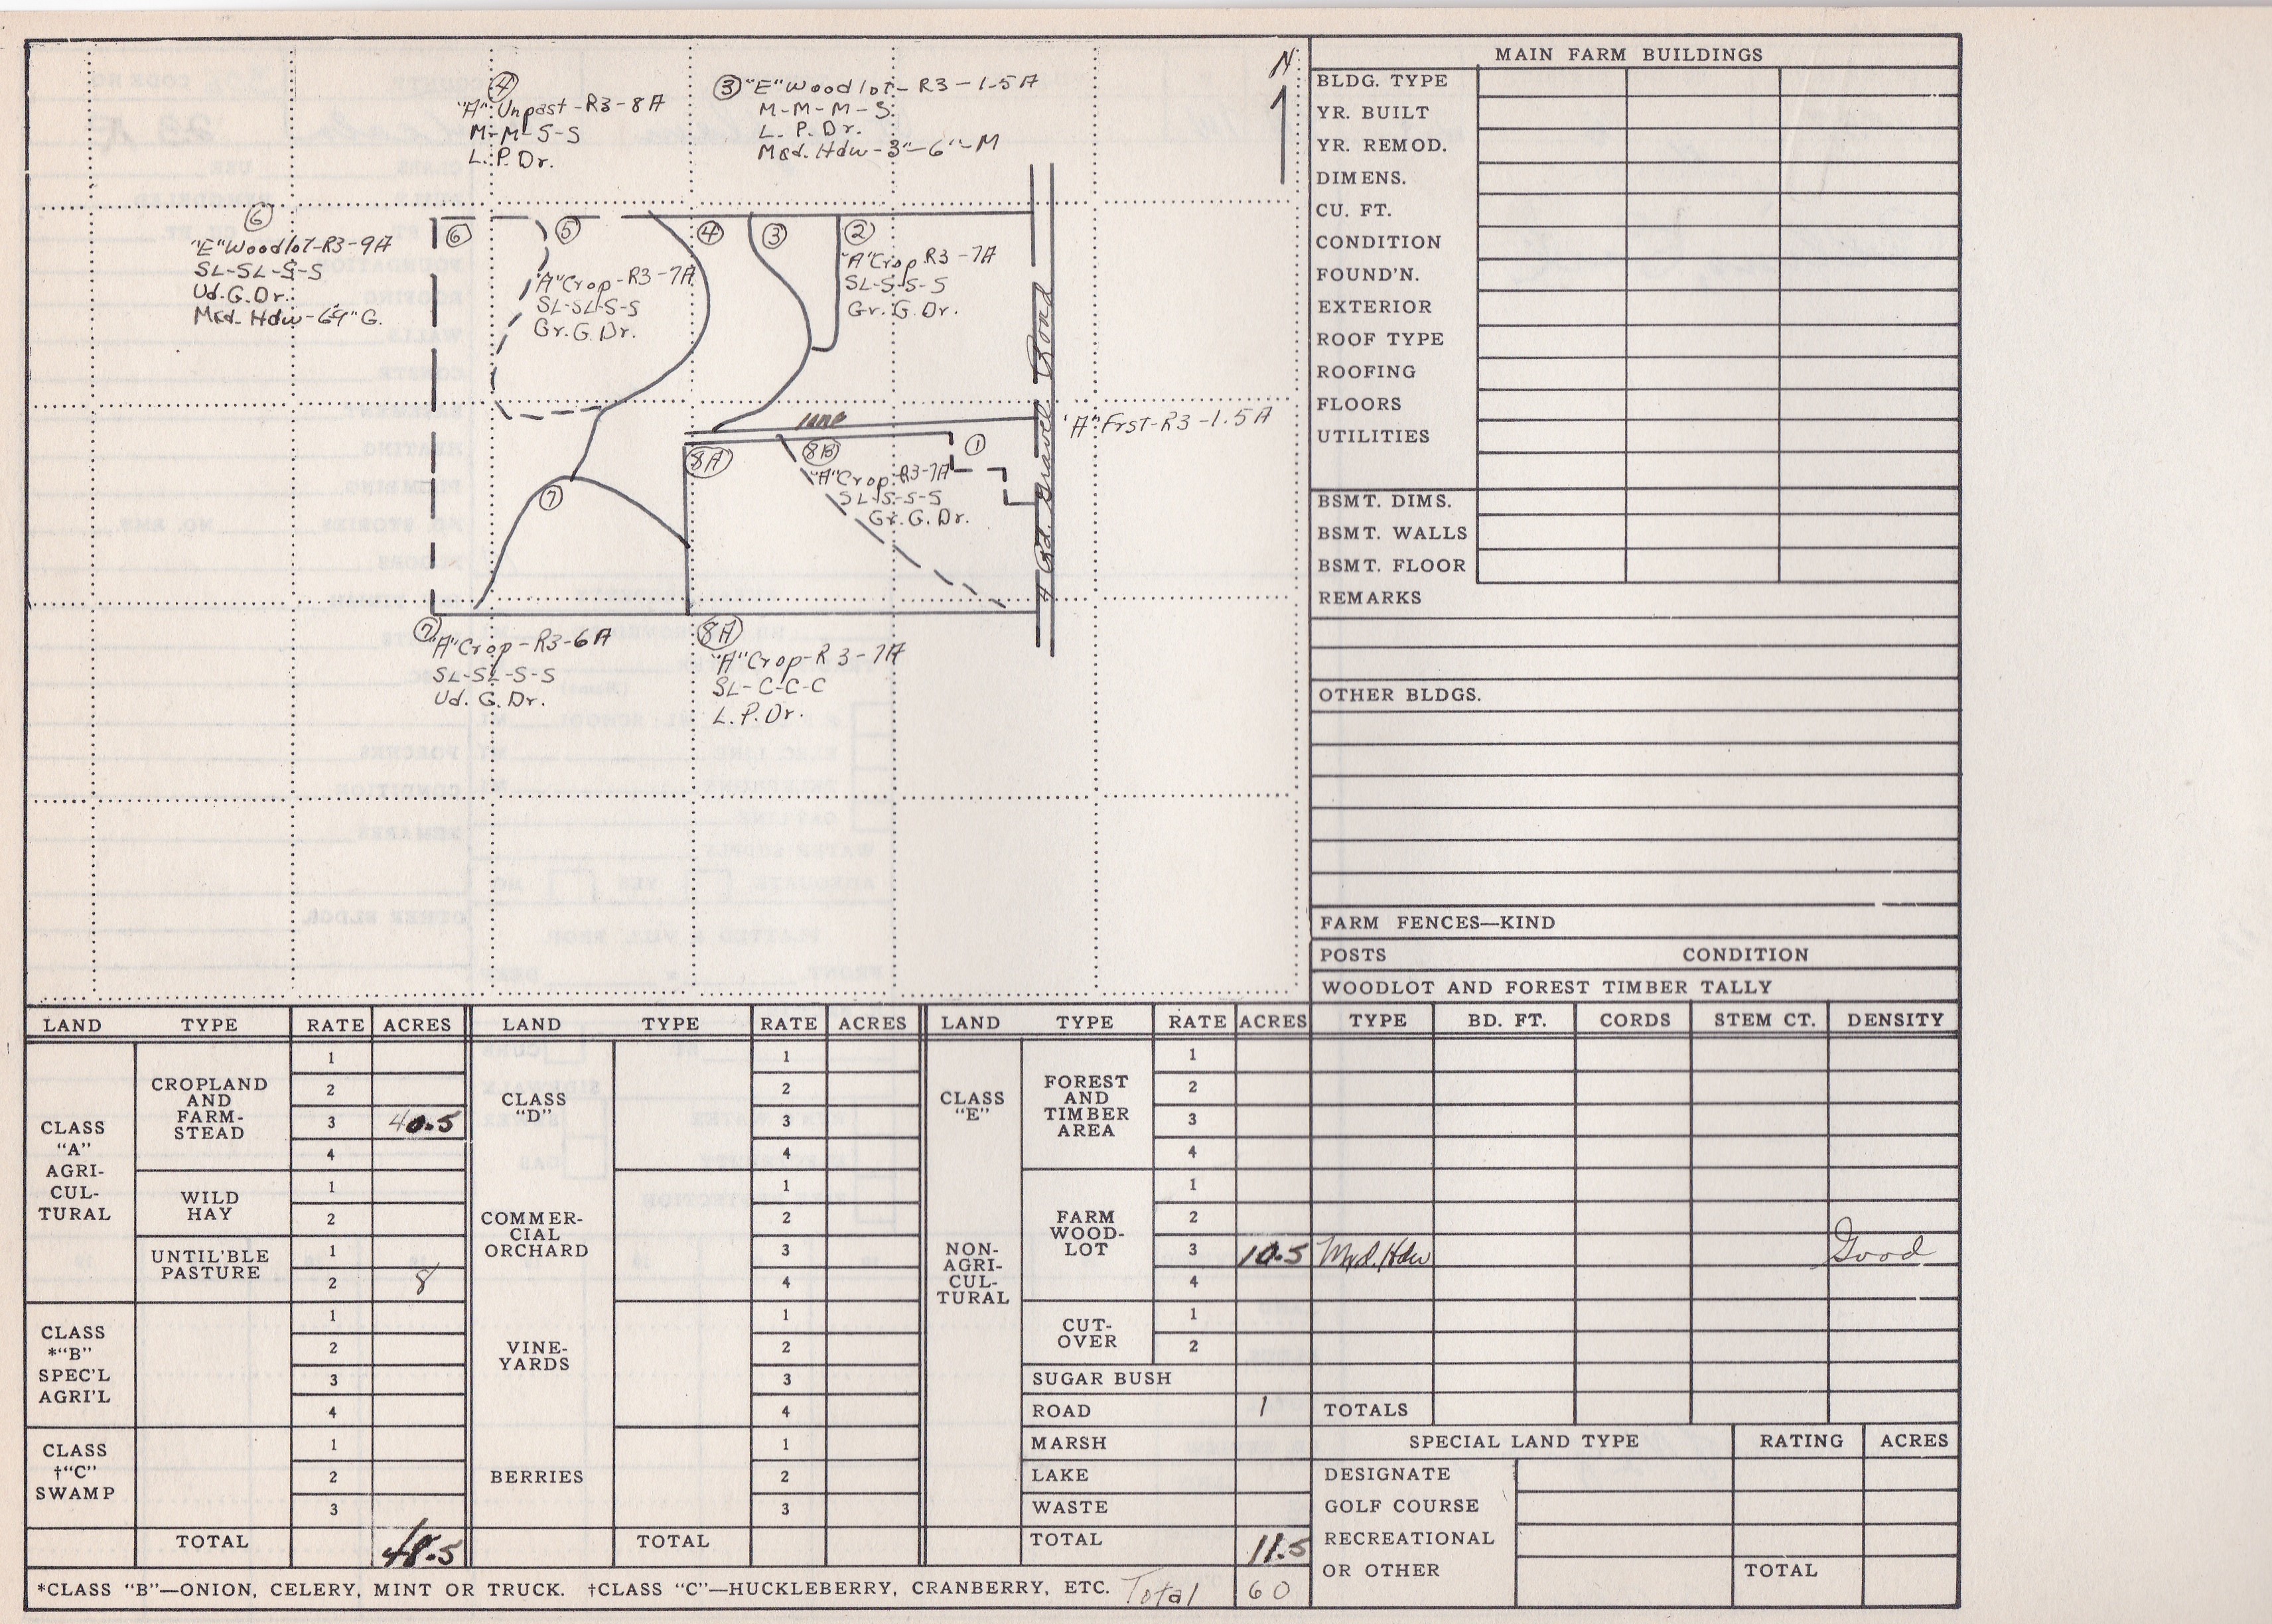 N
④
"A" Unpast-R3-8A
M-M-S-S
L.P. Dr.
③ "E" Woodlot-R3-1.5A
M-M-M-S
L. P. Dr.
Mxd. Hdw-3"-6"-M
⑥
"E" Woodlot-R3-9A
SL-SL-S-S
Ud. G. Dr.
Mxd. Hdw-6-9" G.
⑥
⑤
"A" Crop-R3-7A
SL-SL-S-S
Gr. G. Dr.
④
③
②
"A" Crop R3-7A
SL-S-S-S
Gr. G. Dr.
lane
4 Rd. Gravel Road
"A" Frst-R3-1.5A
①
8A
8B
"A" Crop-R3-7A
SL-S-S-S
Gr. G. Dr.
⑦
⑦
"A" Crop-R3-6A
SL-SL-S-S
Ud. G. Dr.
8A
"A" Crop-R3-7A
SL-C-C-C
L. P. Dr.
MAIN FARM BUILDINGS
BLDG. TYPE
YR. BUILT
YR. REMOD.
DIMENS.
CU. FT.
CONDITION
FOUND'N.
EXTERIOR
ROOF TYPE
ROOFING
FLOORS
UTILITIES
BSMT. DIMS.
BSMT. WALLS
BSMT. FLOOR
REMARKS
OTHER BLDGS.
FARM FENCES—KIND
POSTS CONDITION
WOODLOT AND FOREST TIMBER TALLY
LAND TYPE RATE ACRES
CLASS
"A"
AGRI-
CUL-
TURAL
CROPLAND
AND
FARM-
STEAD
1
2
3 40.5
4
WILD
HAY
1
2
UNTIL'BLE
PASTURE
1
2 8
CLASS
*"B"
SPEC'L
AGRI'L
1
2
3
4
CLASS
†"C"
SWAMP
1
2
3
TOTAL 48.5
LAND TYPE RATE ACRES
CLASS
"D"
COMMER-
CIAL
ORCHARD
VINE-
YARDS
BERRIES
1
2
3
4
1
2
3
4
1
2
3
4
1
2
3
TOTAL
LAND TYPE RATE ACRES
CLASS
"E"
NON-
AGRI-
CUL-
TURAL
FOREST
AND
TIMBER
AREA
1
2
3
4
FARM
WOOD-
LOT
1
2
3 10.5
4
CUT-
OVER
1
2
SUGAR BUSH
ROAD 1
MARSH
LAKE
WASTE
TOTAL 11.5
TYPE BD. FT. CORDS STEM CT. DENSITY
Mxd. Hdw Good
TOTALS
SPECIAL LAND TYPE RATING ACRES
DESIGNATE
GOLF COURSE
RECREATIONAL
OR OTHER TOTAL
*CLASS "B"—ONION, CELERY, MINT OR TRUCK. †CLASS "C"—HUCKLEBERRY, CRANBERRY, ETC. Total 60